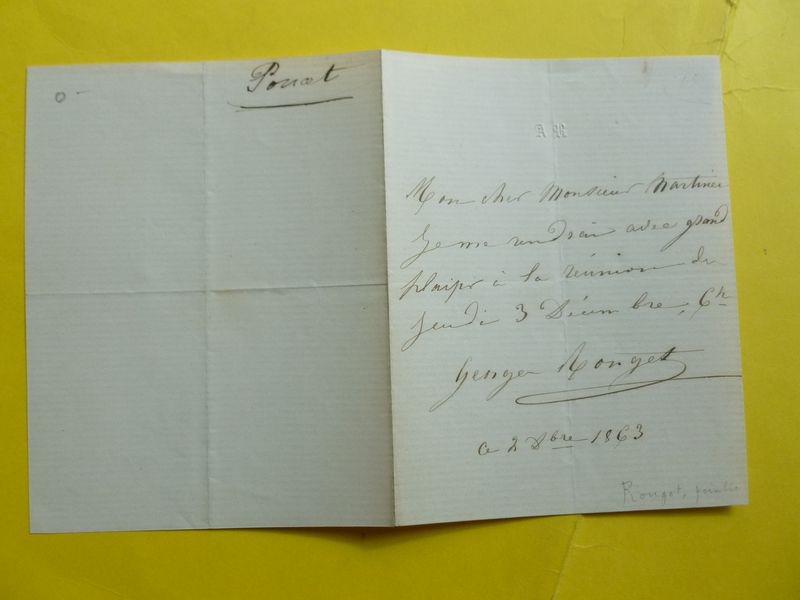 0-
A R
Mon cher Monsieur Martinet
Je me rendrai avec grand
plaisir à la réunion du
Jeudi 3 Décembre, 6h
Georges Rouget
ce 2 Dbre 1863
Rouget, peintre